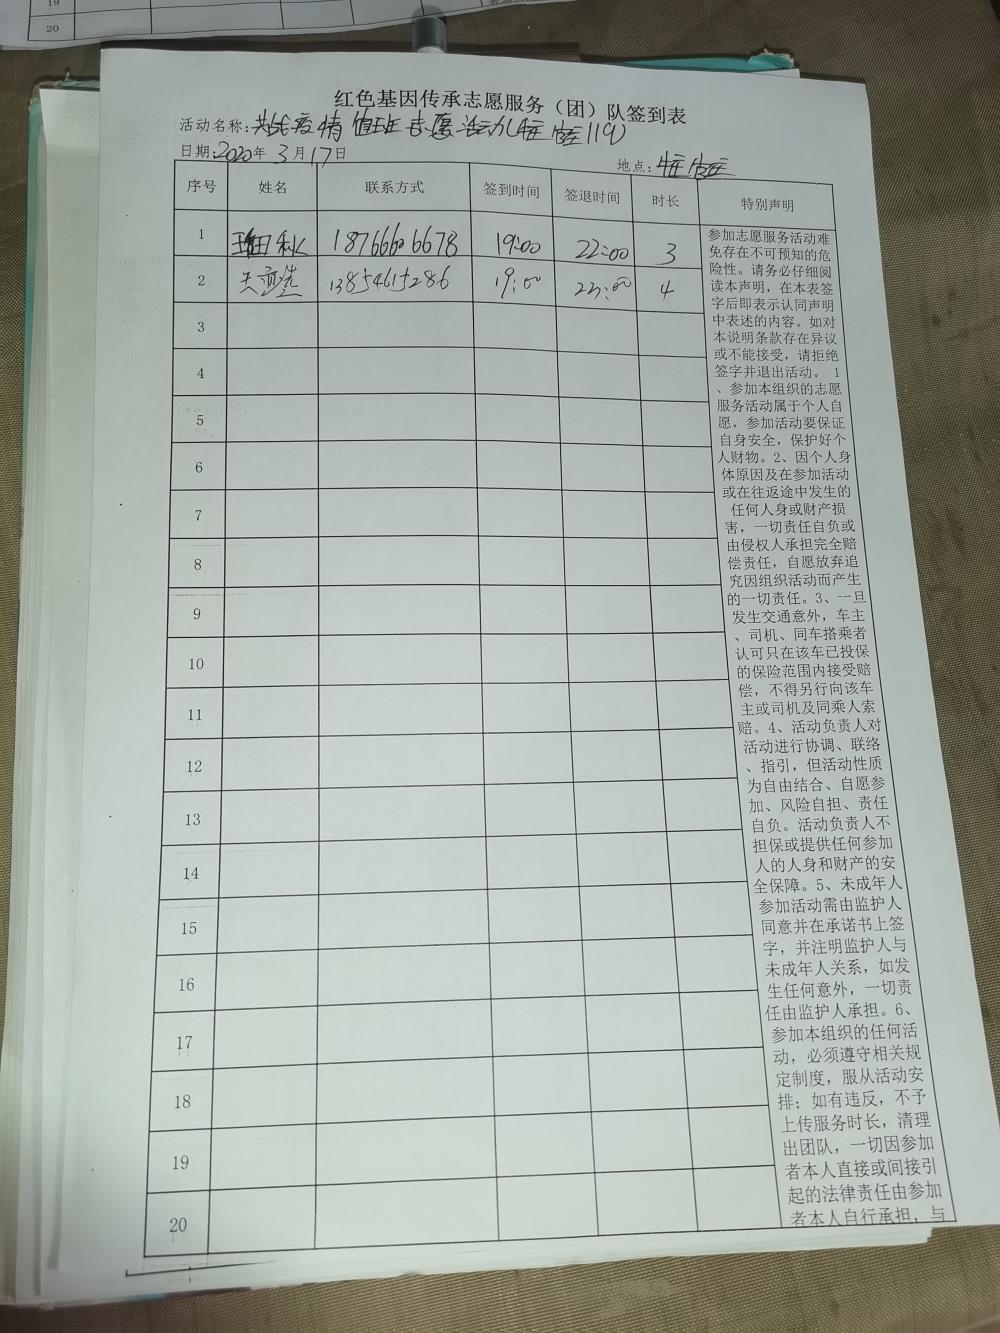 19
20
红色基因传承志愿服务（团）队签到表
活动名称：抗疫情值班志愿活动
日期：2020年3月17日
地点：
序号 姓名 联系方式 签到时间 签退时间 时长 特别声明
1 18766606678 19:00 22:00 3
2 13854615286 19:00 23:00 4
3
4
5
6
7
8
9
10
11
12
13
14
15
16
17
18
19
20
参加志愿服务活动难
免存在不可预知的危
险性。请务必仔细阅
读本声明，在本表签
字后即表示认同声明
中表述的内容。如对
本说明条款存在异议
或不能接受，请拒绝
签字并退出活动。 1
、参加本组织的志愿
服务活动属于个人自
愿，参加活动要保证
自身安全，保护好个
人财物。2、因个人身
体原因及在参加活动
或在往返途中发生的
任何人身或财产损
害，一切责任自负或
由侵权人承担完全赔
偿责任，自愿放弃追
究因组织活动而产生
的一切责任。3、一旦
发生交通意外，车主
、司机、同车搭乘者
认可只在该车已投保
的保险范围内接受赔
偿，不得另行向该车
主或司机及同乘人索
赔。4、活动负责人对
活动进行协调、联络
、指引，但活动性质
为自由结合、自愿参
加、风险自担、责任
自负。活动负责人不
担保或提供任何参加
人的人身和财产的安
全保障。5、未成年人
参加活动需由监护人
同意并在承诺书上签
字，并注明监护人与
未成年人关系，如发
生任何意外，一切责
任由监护人承担。6、
参加本组织的任何活
动，必须遵守相关规
定制度，服从活动安
排；如有违反，不予
上传服务时长，清理
出团队，一切因参加
者本人直接或间接引
起的法律责任由参加
者本人自行承担，与